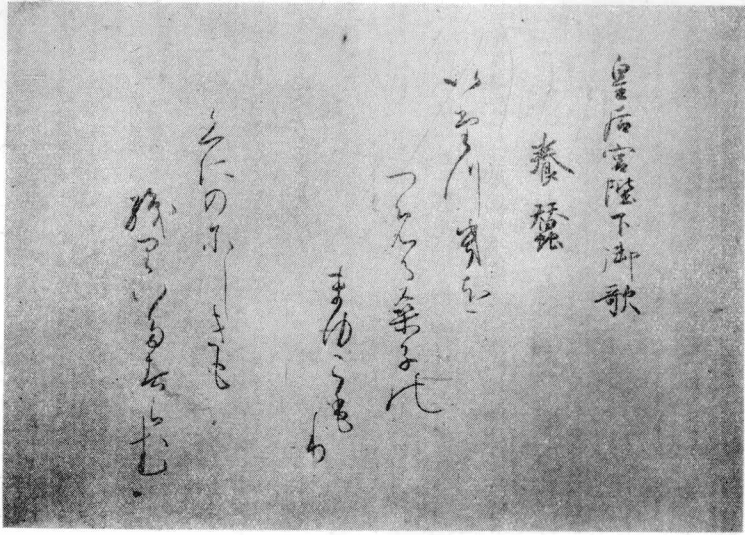 皇后宮陛下御歌
養蚕
いたつきを
つめる桑子の
まゆこもり
くにのにしきも
織りいたすらむ